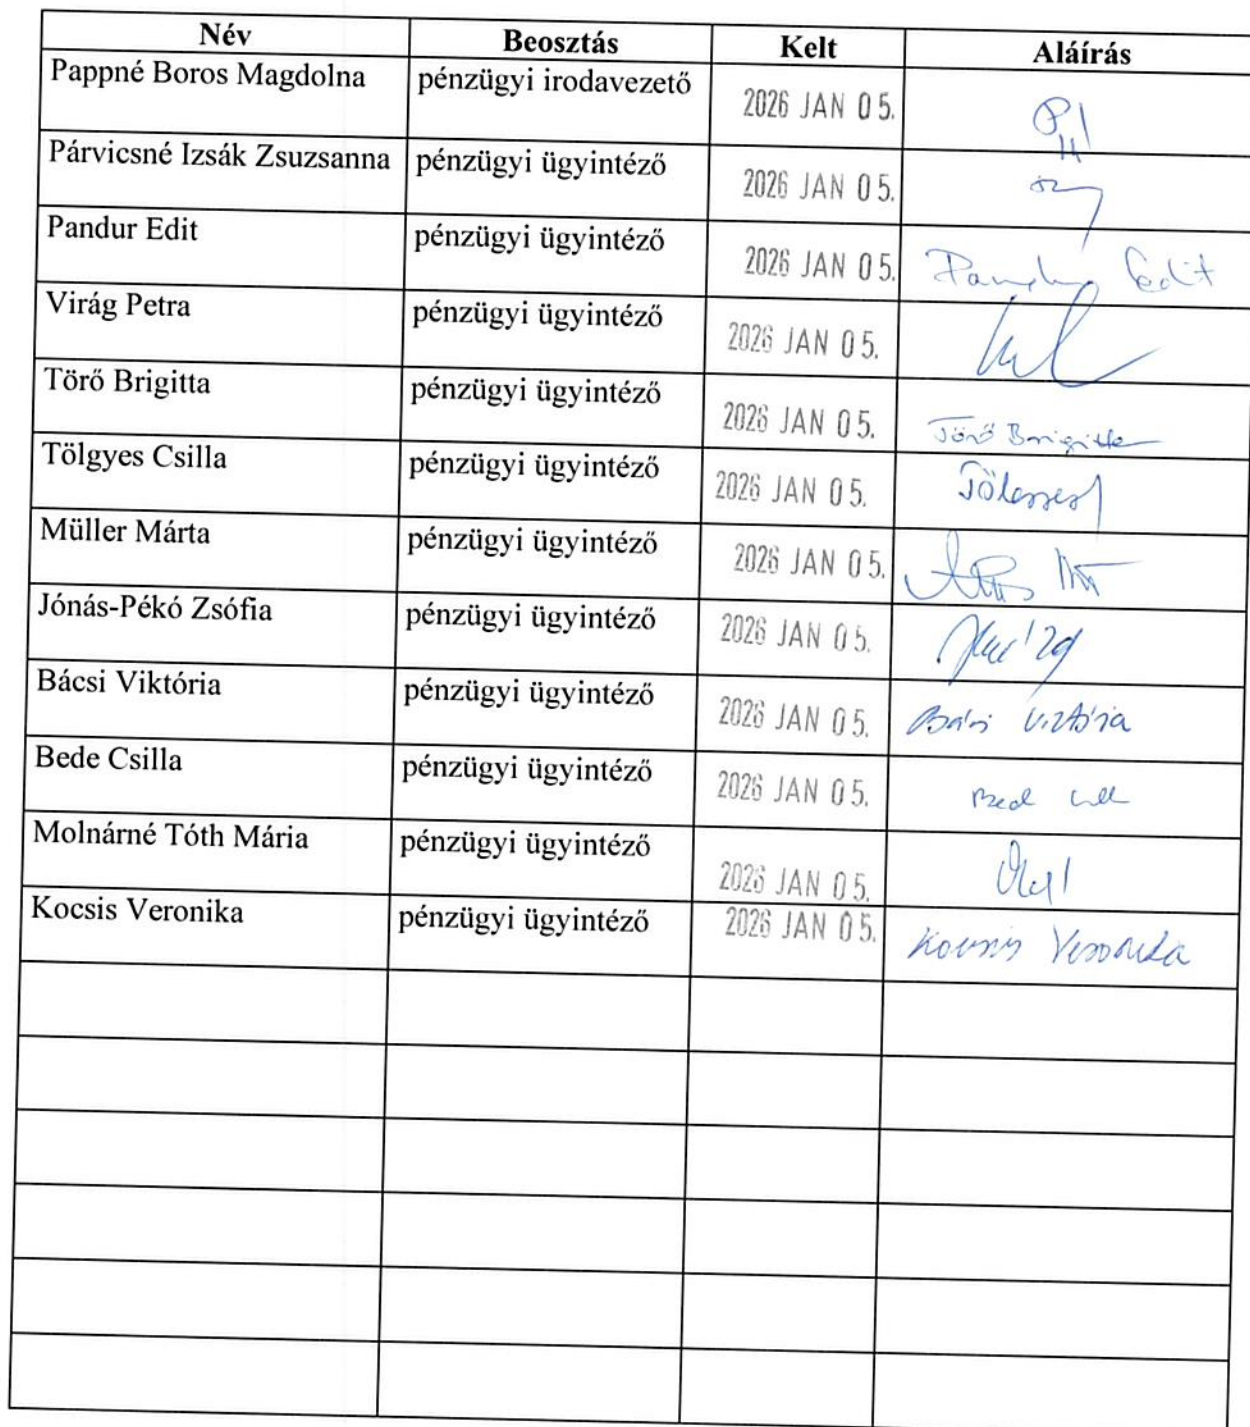 Név Beosztás Kelt Aláírás
Pappné Boros Magdolna pénzügyi irodavezető 2026 JAN 05.
Párvicsné Izsák Zsuzsanna pénzügyi ügyintéző 2026 JAN 05.
Pandur Edit pénzügyi ügyintéző 2026 JAN 05. Pandur Edit
Virág Petra pénzügyi ügyintéző 2026 JAN 05.
Törő Brigitta pénzügyi ügyintéző 2026 JAN 05. Törő Brigitta
Tölgyes Csilla pénzügyi ügyintéző 2026 JAN 05. Tölgyes
Müller Márta pénzügyi ügyintéző 2026 JAN 05.
Jónás-Pékó Zsófia pénzügyi ügyintéző 2026 JAN 05.
Bácsi Viktória pénzügyi ügyintéző 2026 JAN 05. Bácsi Viktória
Bede Csilla pénzügyi ügyintéző 2026 JAN 05.
Molnárné Tóth Mária pénzügyi ügyintéző 2026 JAN 05.
Kocsis Veronika pénzügyi ügyintéző 2026 JAN 05. Kocsis Veronika